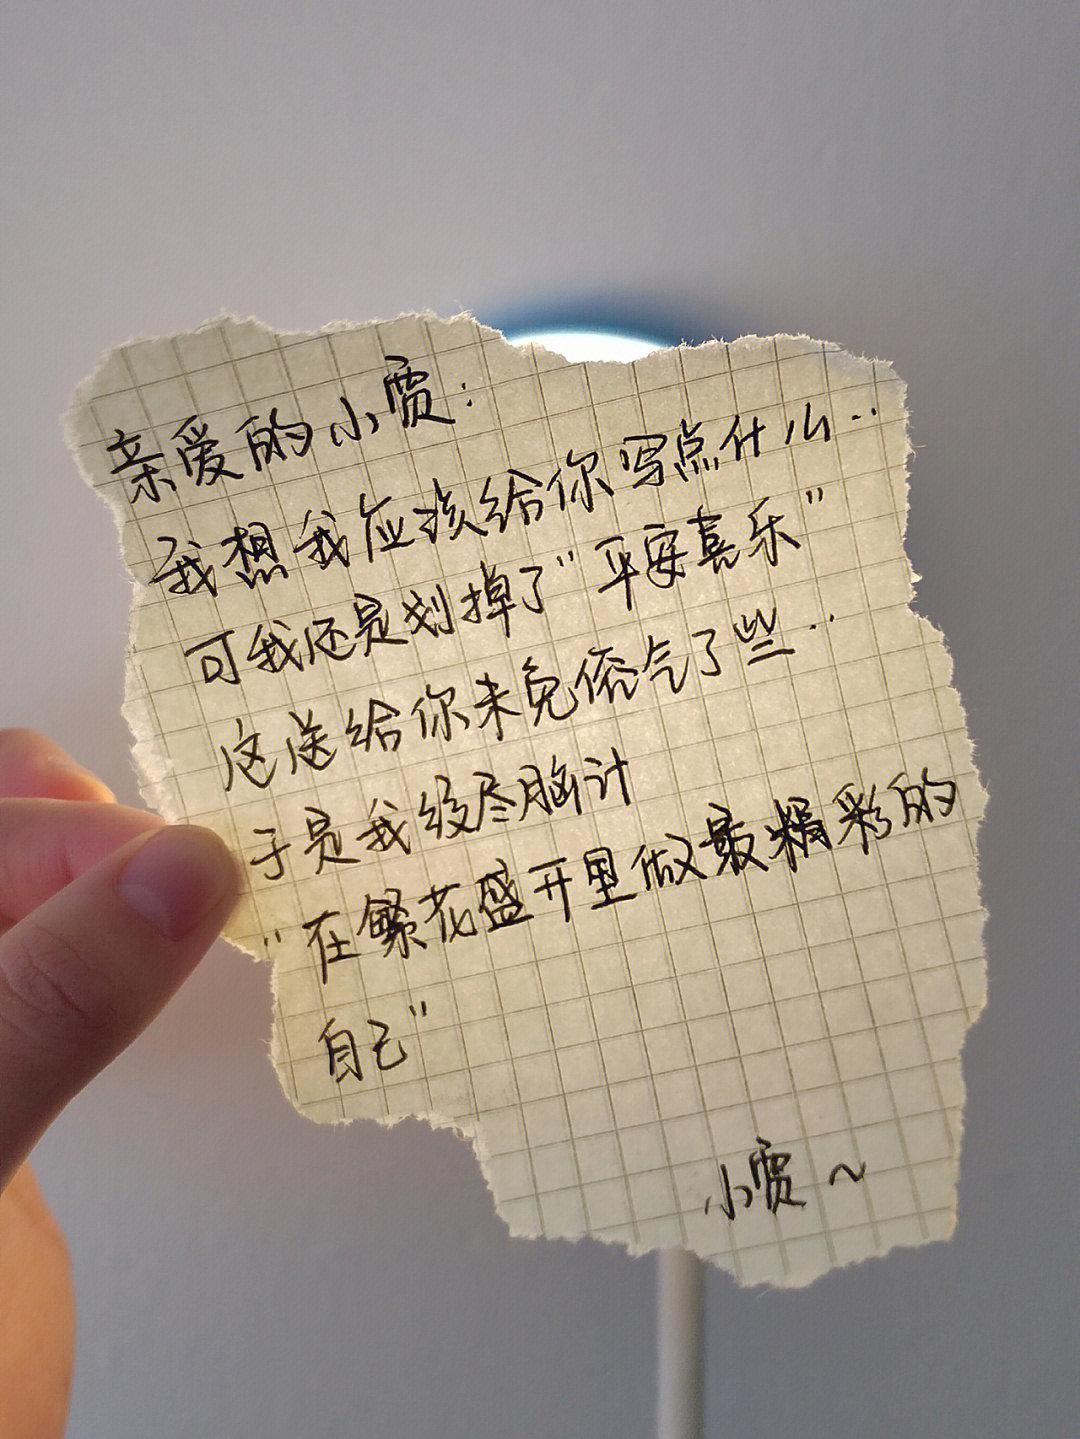 亲爱的小贾:
我想我应该给你写点什么..
可我还是划掉了"平安喜乐"
这送给你未免俗气了些..
于是我绞尽脑计
"在繁花盛开里做最精彩的
自己"
小贾~